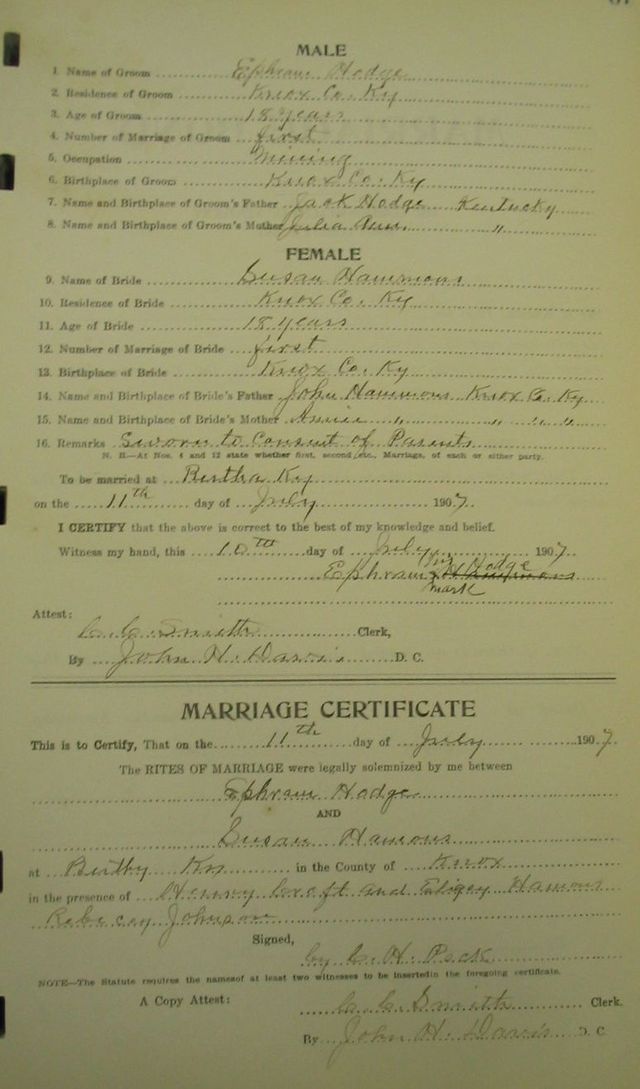 MALE
1. Name of Groom Ephram Hodge
2. Residence of Groom Knox Co. Ky
3. Age of Groom 18 years
4. Number of Marriage of Groom first
5. Occupation Mining
6. Birthplace of Groom Knox Co. Ky
7. Name and Birthplace of Groom's Father Jack Hodge Kentucky
8. Name and Birthplace of Groom's Mother Julia Ann "
FEMALE
9. Name of Bride Susan Hammons
10. Residence of Bride Knox Co. Ky
11. Age of Bride 18 years
12. Number of Marriage of Bride first
13. Birthplace of Bride Knox Co. Ky
14. Name and Birthplace of Bride's Father John Hammons Knox Co. Ky
15. Name and Birthplace of Bride's Mother Annie " " " "
16. Remarks Sworn to Consent of Parents
N. B.—At Nos. 4 and 12 state whether first, second, etc., Marriage, of each or either party.
To be married at Bertha Ky
on the 11th day of July 1907
I CERTIFY that the above is correct to the best of my knowledge and belief.
Witness my hand, this 10th day of July 1907.
Ephram his Hodge
mark
Attest:
C. C. Smith Clerk,
By John H. Davis D. C.
MARRIAGE CERTIFICATE
This is to Certify, That on the 11th day of July 1907
The RITES OF MARRIAGE were legally solemnized by me between
Ephram Hodge
AND
Susan Hamons
at in the County of Knox
in the presence of Henny Croft and Hamons
Johnson
Signed,
by C. H. Peck
NOTE—The Statute requires the namesof at least two witnesses to be insertedin the foregoing certificate.
A Copy Attest: C. C. Smith Clerk.
By John H. Davis D. C